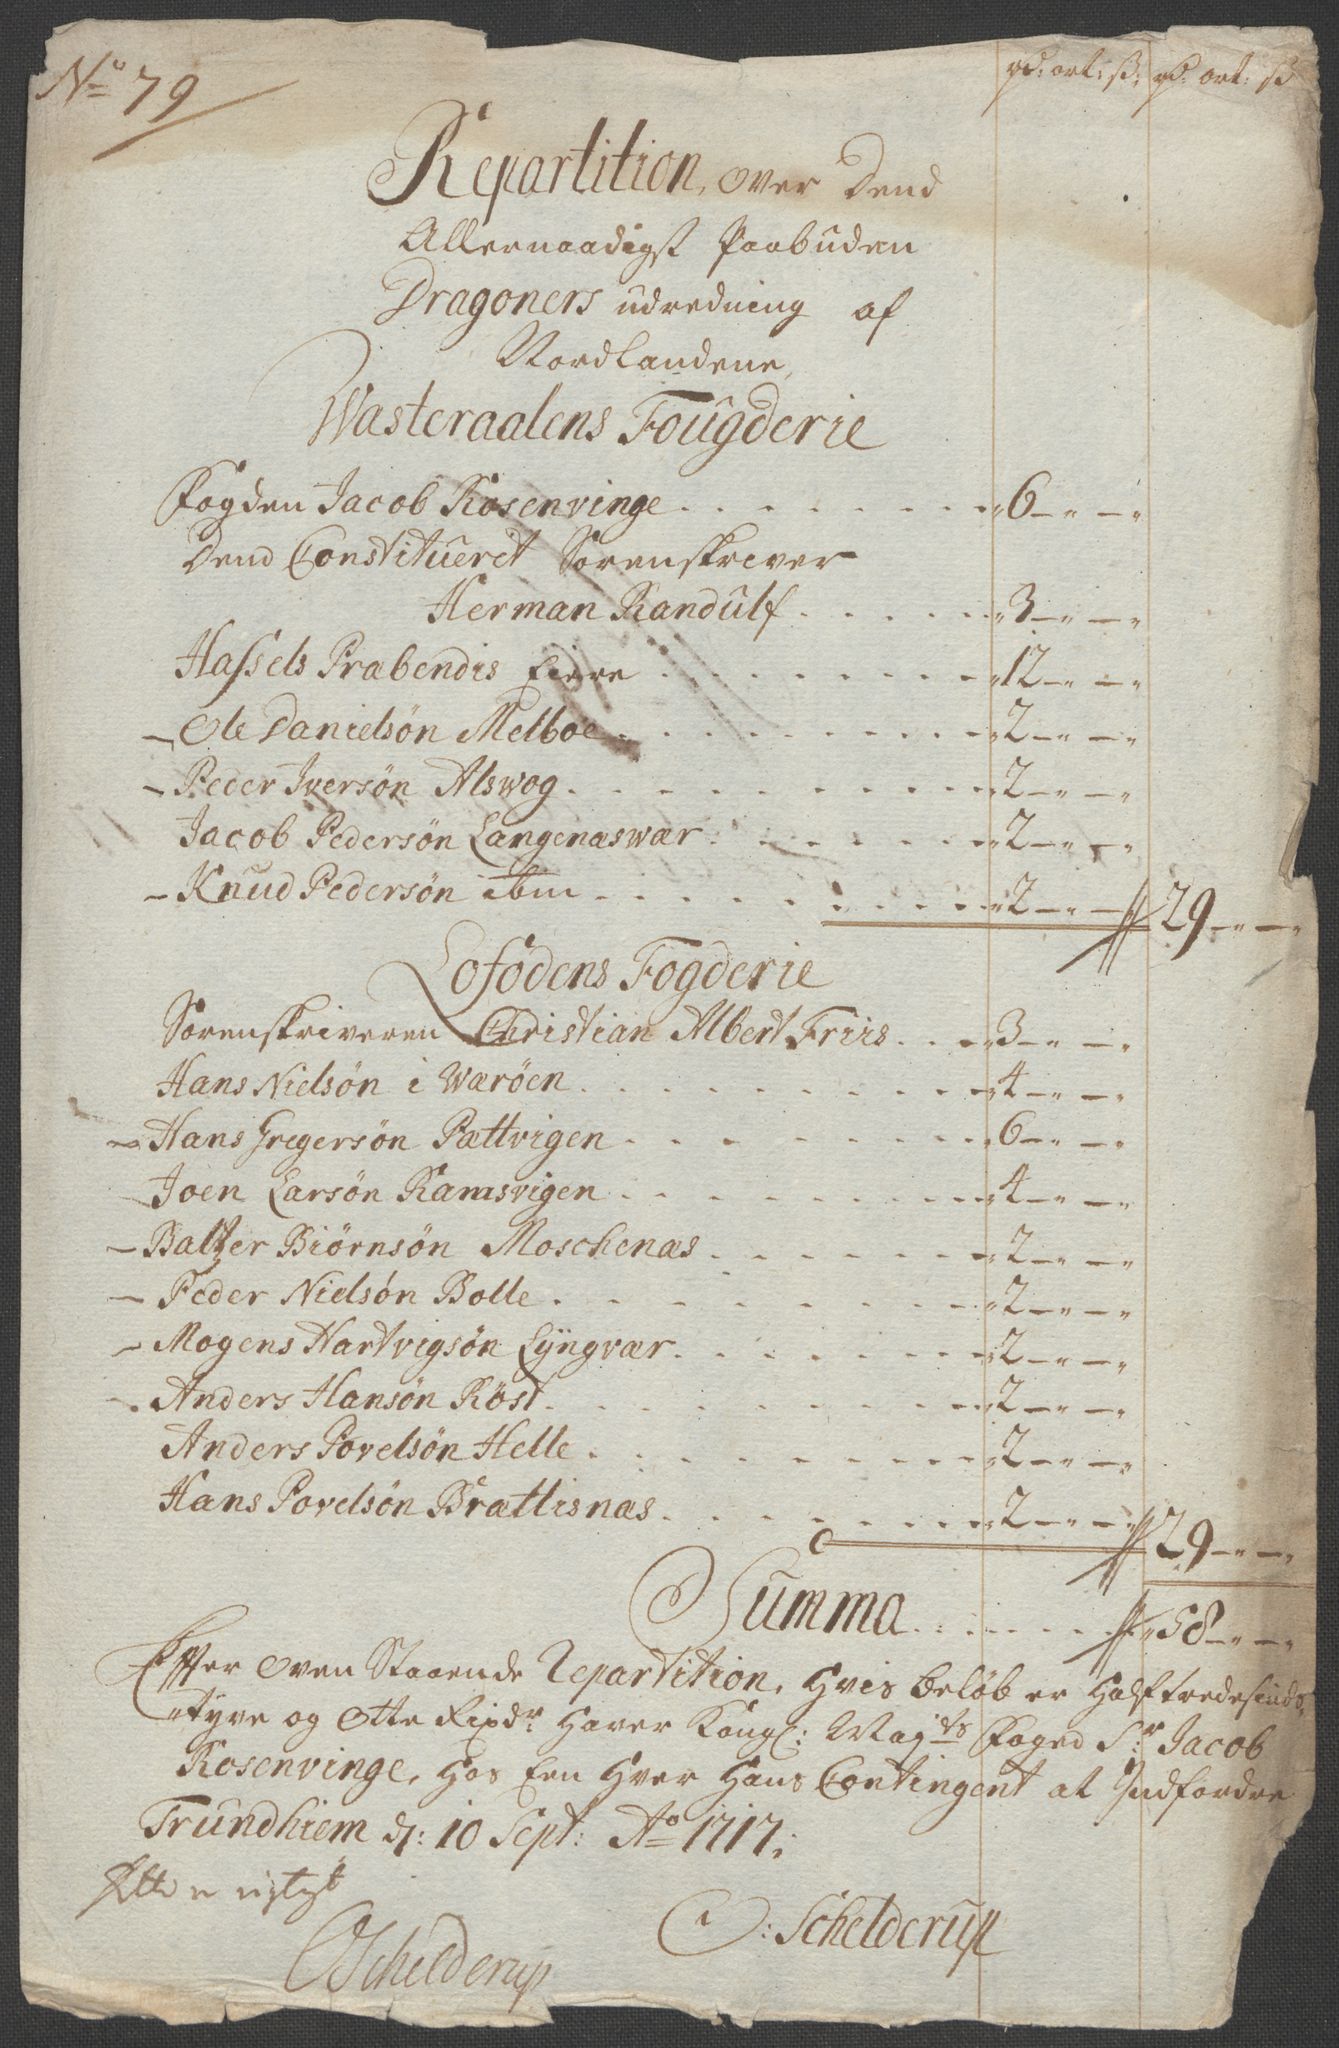 No 79
rd: ort: ß: rd: ort: ß
Repartition, over Dend
Allernaadigst Paabuden
Dragoners udredning af
Nordlandene,
Wasteraalens Fougderie
Fogden Jacob Rosenvinge . . . . . . . . 6 — " — "
Dend Constitueret Sorenskriver
Herman Randulf . . . . . 3 — " — "
Hassels Præbendis Eiere . . . . . . . . 12 — " — "
— Ole Danielsøn Melboe . . . . . . . . 2 — " — "
— Peder Iversøn Alswog . . . . . . . . 2 — " — "
Jacob Pedersøn Langenæswær . . . . . . 2 — " — "
— Knud Pedersøn ibm . . . . . . . . 2 — " — " // 29 — " — "
Lofodens Fogderie
Sorenskriveren Christian Albert Friis . . . 3 — " — "
Hans Nielsøn i Wærøen . . . . . . . . 4 — " — "
— Hans Gregersøn Pættvigen . . . . . . . 6 — " — "
Joen Larsøn Ramsvigen . . . . . . . . 4 — " — "
— Baltzer Biørnsøn Moschenæs . . . . . . 2 — " — "
— Peder Nielsøn Bolle . . . . . . . . 2 — " — "
— Mogens Hartvigsøn Lyngvær . . . . . . 2 — " — "
— Anders Hansøn Röst . . . . . . . . 2 — " — "
Anders Povelsøn Helle . . . . . . . . 2 — " — "
Hans Povelsøn Brættisnæs . . . . . . . 2 — " — " // 29 — " — "
Summa . . . . . . // 58 — " — "
Effter Oven Staaende Repartition, Hvis beløb er Halftredesinds-
tyve og Otte Rixdr Haver Kongl: Majts Foged Sr Jacob
Rosenvinge, Hos Een Hver Hans Contingent at Indfordre
Trundhiem d: 10 Sept: Ao 1717.
Rigtigt
C: Schelderup
CSchelderup